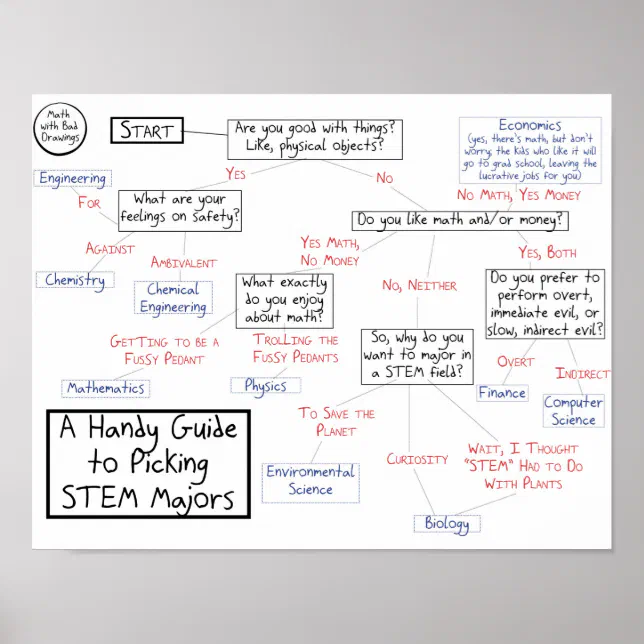 Math
with Bad
Drawings
START
Are you good with things?
Like, physical objects?
Economics
(yes, there's math, but don't
worry; the kids who like it will
go to grad school, leaving the
lucrative jobs for you)
YES
NO
Engineering
FOR
What are your
feelings on safety?
NO MATH, YES MONEY
Do you like math and/or money?
AGAINST
AMBIVALENT
Chemistry
Chemical
Engineering
YES MATH,
NO MONEY
NO, NEITHER
YES, BOTH
What exactly
do you enjoy
about math?
Do you prefer to
perform overt,
immediate evil, or
slow, indirect evil?
GETTING TO BE A
FUSSY PEDANT
TROLLING THE
FUSSY PEDANTS
So, why do you
want to major in
a STEM field?
OVERT
INDIRECT
Mathematics
Physics
Finance
Computer
Science
A Handy Guide
to Picking
STEM Majors
TO SAVE THE
PLANET
CURIOSITY
WAIT, I THOUGHT
"STEM" HAD TO DO
WITH PLANTS
Environmental
Science
Biology